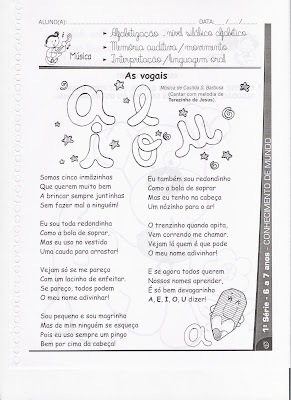 ALUNO(A): DATA: / /
Música
Alfabetização - nível silábico alfabético
Memória auditiva / movimento
Interpretação / linguagem oral
As vogais
Música de Casilda S. Barbosa
(Cantar com melodia de
Terezinha de Jesus).
a e i o u
Somos cinco irmãzinhas
Que querem muito bem
A brincar sempre juntinhas
Sem fazer mal a ninguém!
Eu sou toda redondinha
Como a bola de soprar,
Mas eu uso no vestido
Uma cauda para arrastar!
Vejam só se me pareço
Com um lacinho de enfeitar.
Se pareço, todos podem
O meu nome adivinhar!
Sou pequeno e sou magrinho
Mas de mim ninguém se esqueça
Pois eu uso sempre um pingo
Bem por cima da cabeça!
Eu também sou redondinho
Como a bola de soprar
Mas eu tenho na cabeça
Um nózinho para o ar!
O trenzinho quando apita,
Vem correndo me chamar.
Vejam lá quem é que pode
O meu nome adivinhar!
E se agora todos querem
Nossos nomes aprender,
É só bem devagarinho
A, E, I, O, U dizer!
a
1ª Série - 6 a 7 anos - CONHECIMENTO DE MUNDO